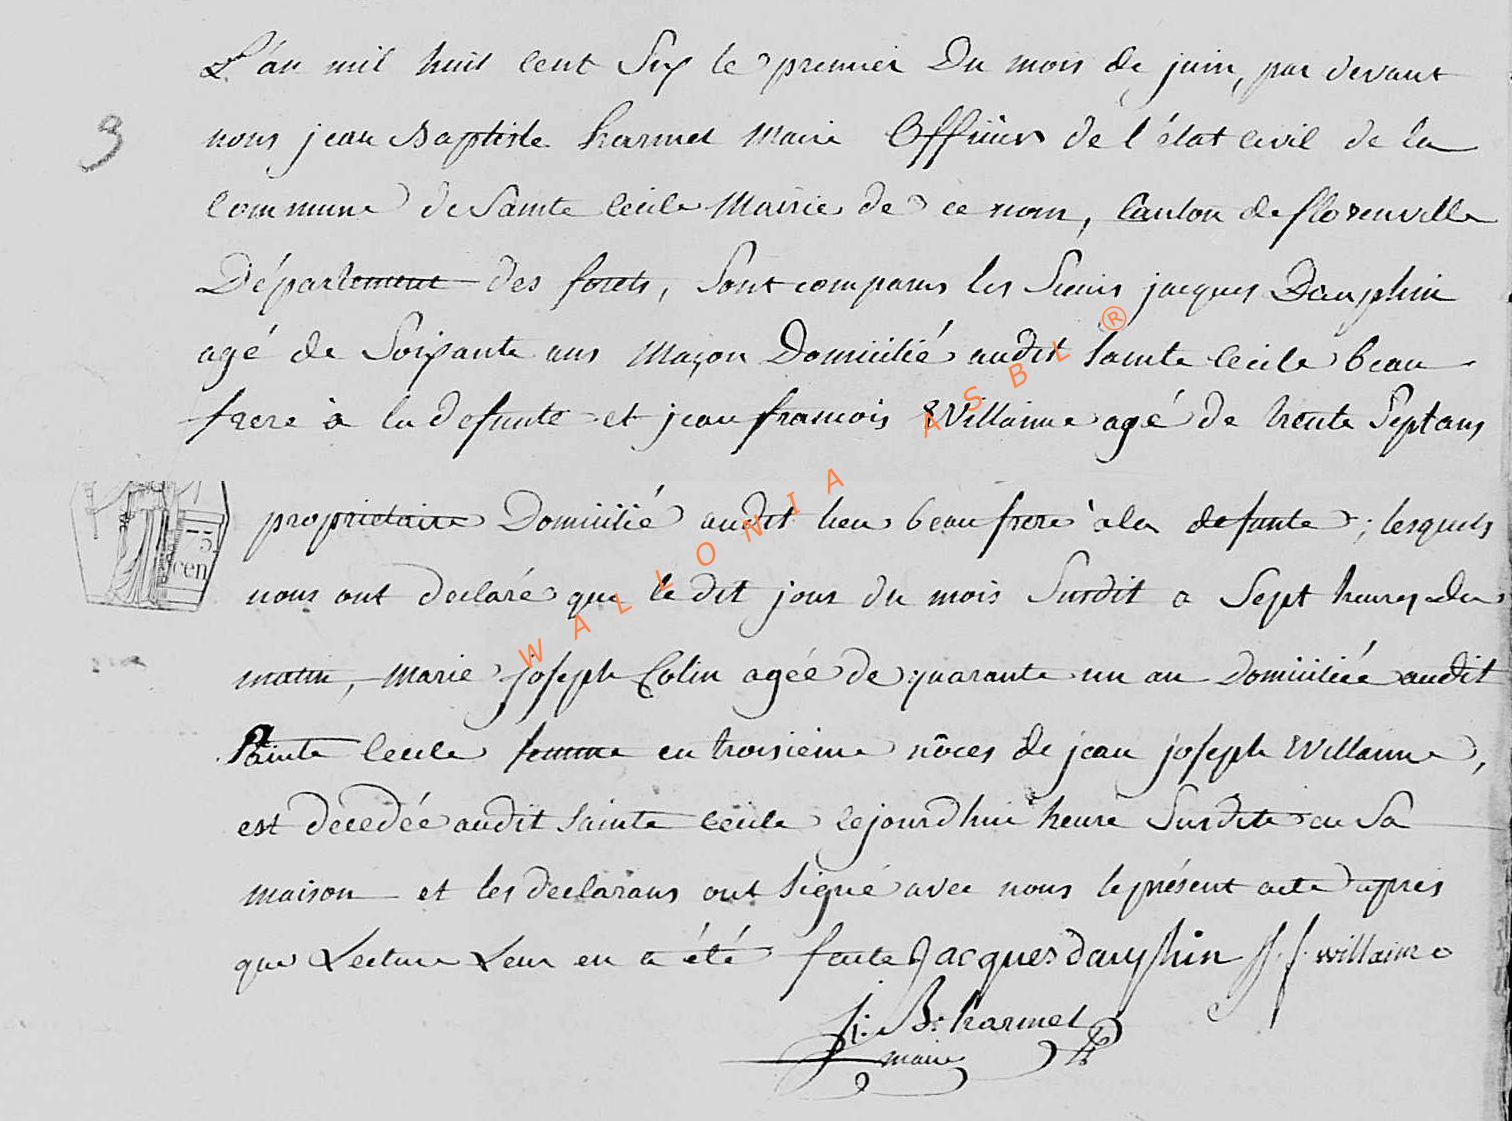 L'an mil huit cent Six le premier Du mois de juin, par devant
3
nous jean Baptiste harmel Maire Officier de l'état civil de la
Commune de Sainte Cecile Mairie de ce nom, Canton de florenville
Département des forets, Sont comparus les Sieurs jacques Dauphin
agé de Soixante ans Maçon Domicilié audit Sainte Cecile beau
frere à la defunte et jean francois Willaime agé de trente Sept ans
proprietaire Domicilié audit lieu beau frere à la defunte ; lesquels
75
cen
nous ont declaré que le dit jour du mois Susdit a Sept heures Du
matin, Marie joseph Colin agée de quarante un an Domiciliée audit
Sainte Cecile femme en troisieme nôces de jean joseph Willaime,
est decedée audit Sainte Cecile cejourdhui heure Susdite en Sa
maison et les declarans ont Signé avec nous le présent acte apres
que Lecture Leur en a été faite Jacques dauphin J. f. willaime
j: B: harmel
maire
WALLONIA ASBL ®